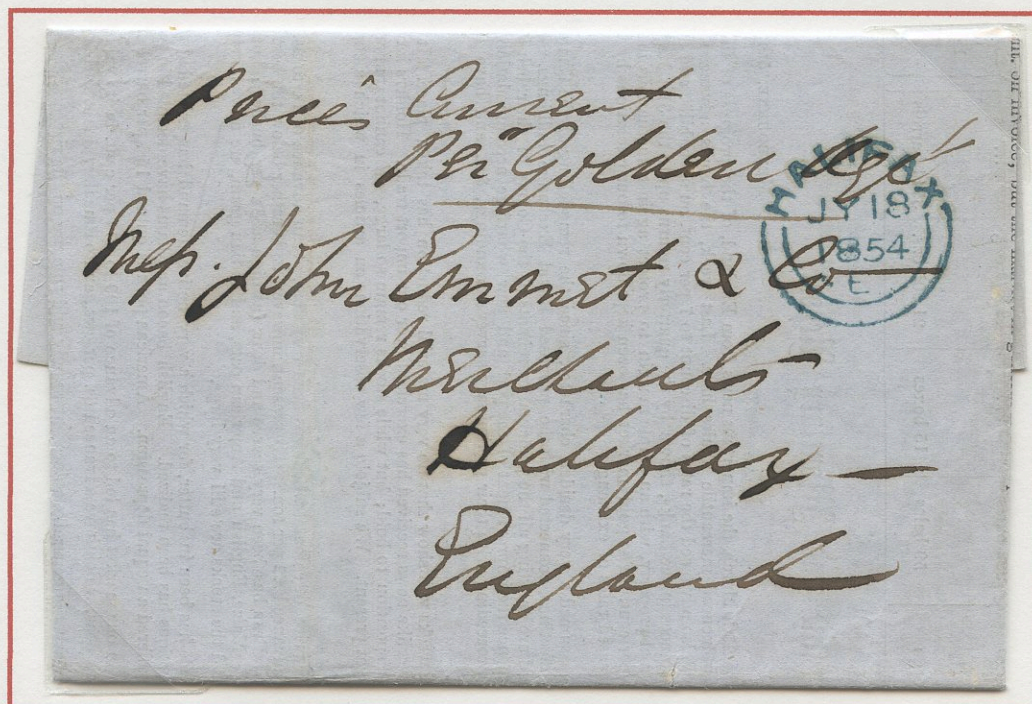 Prices Current
Per "Golden Age"
HALIFAX
JY 18
1854
E
Mess. John Emmet & Co
Merchants
Halifax
England